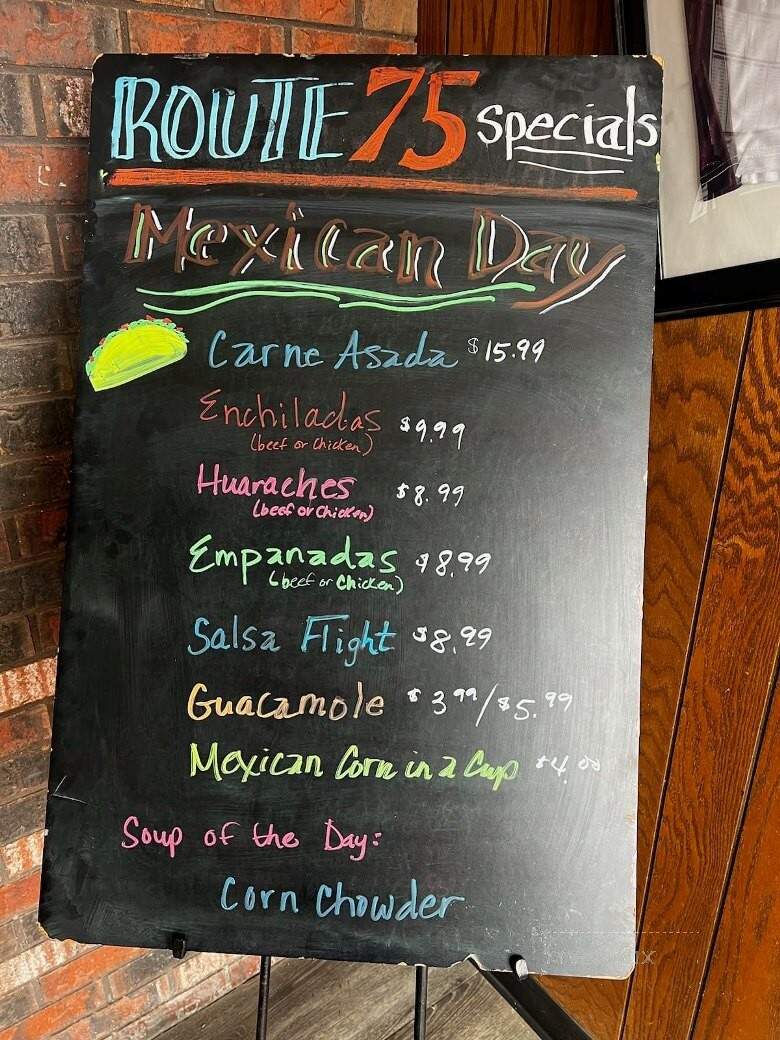 ROUTE 75 specials
Mexican Day
Carne Asada $15.99
Enchiladas $9.99
(beef or Chicken)
Huaraches $8.99
(beef or Chicken)
Empanadas $8.99
(beef or Chicken)
Salsa Flight $8.99
Guacamole $3.99/$5.99
Mexican Corn in a Cup $4.00
Soup of the Day:
Corn Chowder